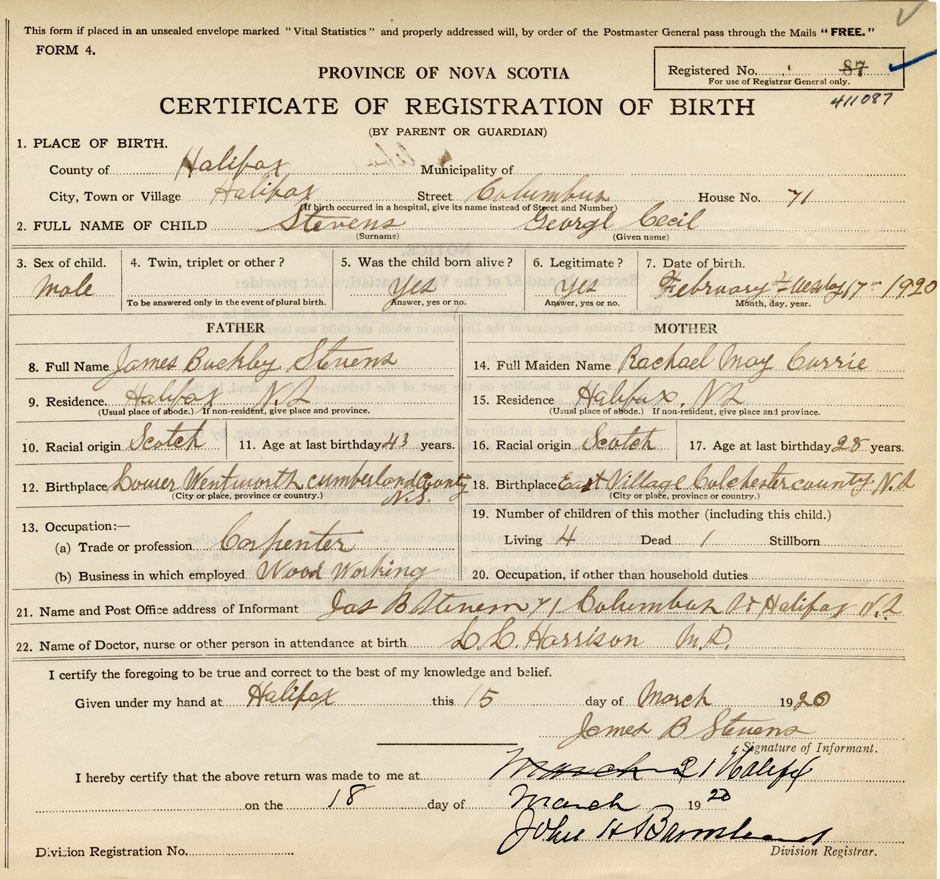 This form if placed in an unsealed envelope marked "Vital Statistics" and properly addressed will, by order of the Postmaster General pass through the Mails "FREE."
FORM 4.
PROVINCE OF NOVA SCOTIA
Registered No. 87
For use of Registrar General only.
411087
CERTIFICATE OF REGISTRATION OF BIRTH
(BY PARENT OR GUARDIAN)
1. PLACE OF BIRTH.
County of Halifax Municipality of
City, Town or Village Halifax Street Columbus House No. 71
(If birth occurred in a hospital, give its name instead of Street and Number)
2. FULL NAME OF CHILD Stevens George Cecil
(Surname) (Given name)
3. Sex of child. 4. Twin, triplet or other? 5. Was the child born alive? 6. Legitimate? 7. Date of birth.
Male Yes Yes February 17 1920
To be answered only in the event of plural birth. Answer, yes or no. Answer, yes or no. Month, day, year.
FATHER MOTHER
8. Full Name James Buckley Stevens 14. Full Maiden Name Rachael May Currie
9. Residence. Halifax N.S 15. Residence Halifax, N.S
(Usual place of abode.) If non-resident, give place and province. (Usual place of abode.) If non-resident, give place and province.
10. Racial origin Scotch 11. Age at last birthday 43 years. 16. Racial origin Scotch 17. Age at last birthday 28 years.
12. Birthplace Lower Wentworth cumberland County N.S. 18. Birthplace East Village Colchester county N.S
(City or place, province or country.) (City or place, province or country.)
13. Occupation:— 19. Number of children of this mother (including this child.)
(a) Trade or profession Carpenter Living 4 Dead 1 Stillborn
(b) Business in which employed Wood Working 20. Occupation, if other than household duties
21. Name and Post Office address of Informant Jas B Stevens 71 Columbus St Halifax N.S
22. Name of Doctor, nurse or other person in attendance at birth L. L. Harrison M.D.
I certify the foregoing to be true and correct to the best of my knowledge and belief.
Given under my hand at Halifax this 15 day of March 1920
James B Stevens
Signature of Informant.
I hereby certify that the above return was made to me at March 21 Halifax
on the 18 day of March 1920
John H
Division Registration No. Division Registrar.